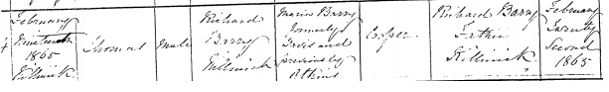 4
February
Nineteenth
1865
Killinick
Thomas
Male
Richard
Barry
Killinick
Maria Barry
formerly
and
previously
Atkins
Richard Barry
Father
Killinick
February
Twenty
Second
1865